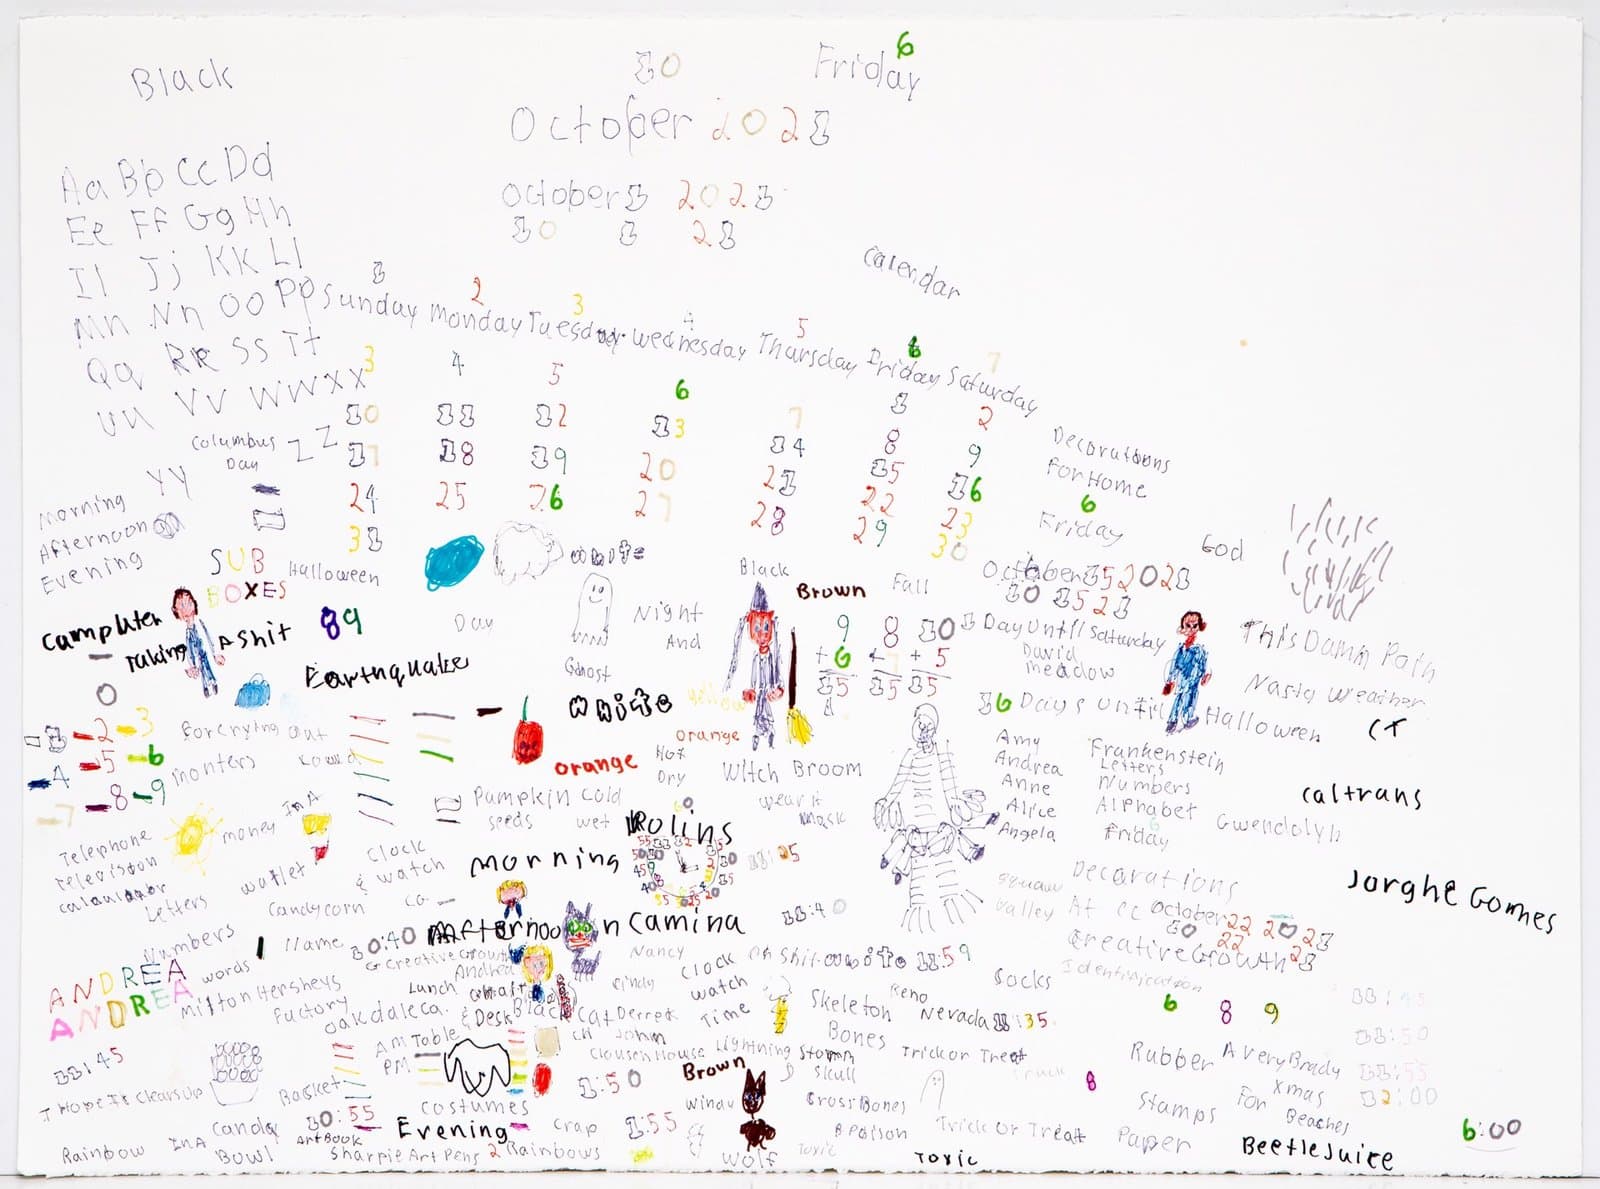 Black
10
Friday 6
October 2021
October 1 2021
10 1 21
Aa Bb Cc Dd
Ee Ff Gg Hh
Ii Jj Kk Ll
Mn Nn Oo Pp
Qq Rr SS Tt
UU VV WW XX
YY ZZ
Calendar
1 2 3 4 5 6 7
Sunday Monday Tuesday Wednesday Thursday Friday Saturday
1 2
3 4 5 6 7 8 9
10 11 12 13 14 15 16
17 18 19 20 21 22 23
24 25 26 27 28 29 30
31
Columbus
Day
Morning
Afternoon
Evening
SUB
BOXES
Halloween
White
Decorations
For Home
6
Friday
God
October 15 2021
10 15 21
Black
Brown
Fall
Day
Night
And
Ghost
Camputer
Taking
A Shit
89
Earthquake
White
9 8 10
+6 +7 +5
15 15 15
1 Day Until Saturday
David
Meadow
16 Days Until Halloween
This Damn Pain
Nasty Weather
0
-1 -2 -3
-4 -5 -6
-7 -8 -9
For crying out
Monters
Yellow
Orange
Orange
Hot
Dry
Witch Broom
Pumpkin Cold
Seeds Wet
Wear it
Mask
Amy
Andrea
Anne
Alice
Angela
Frankenstein
Letters
Numbers
Alphabet
Friday
Gwendolyn
Caltrans
Jorghe Gomes
Telephone
Television
Calculator
Letters
Numbers
Words
Money
In A
Wallet
Clock
& Watch
Candycorn
Name
Rolins
Morning
Afternoon
Camina
11:40
10:40
Creative Growth
Andrea
Lunch
Nancy
Cindy
Clock
Watch
Time
Oh Shit
White
11:59
Valley
Decorations
At CC October 22 2021
10 22 21
Creative Growth
Identification
Socks
6 8 9
ANDREA
ANDREA
Milton Hersheys
Factory
Oakdale Ca.
& Desk
Black Cat
Derrek
John
Clousen House
Lightning Storm
Skeleton
Bones
Reno
Nevada
11:35
Trick or Treat
11:45
AM Table
PM
I Hope It Clears Up
Basket
10:55
Costumes
Evening
11:50
Brown
Windy
Wolf
Skull
Cross Bones
& Poison
Trick or Treat
Toxic
Toxic
8
Rubber
Stamps
Paper
Avery Brady
Xmas
For
Beaches
11:45
11:50
11:55
12:00
Beetlejuice
6:00
Rainbow In A
Candy
Bowl
Art Book
Sharpie Art Pens
2 Rainbows
Crap
1:55